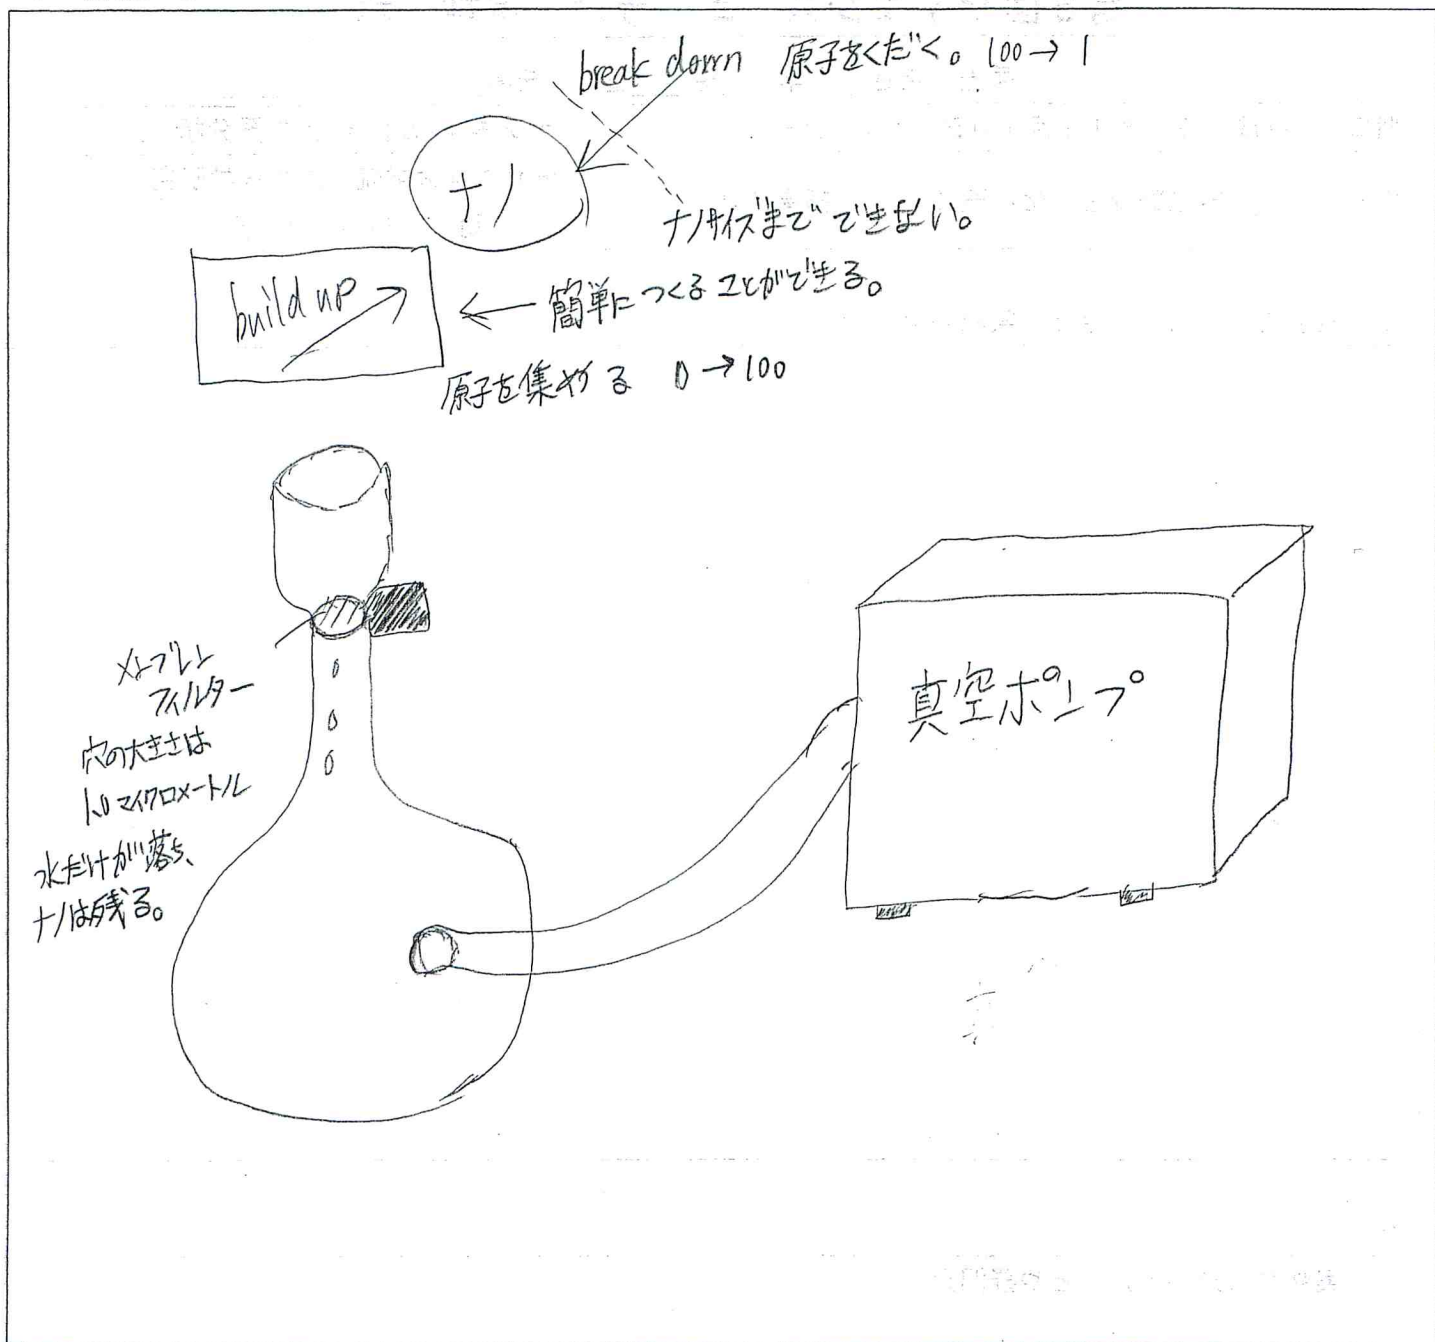 break down 原子をくだく。100→1
ナノ
ナノサイズまでできない。
build up
←簡単につくることができる。
原子を集める 0→100
メンブレン
フィルター
穴の大きさは
1.0マイクロメートル
水だけが落ち、
ナノは残る。
真空ポンプ